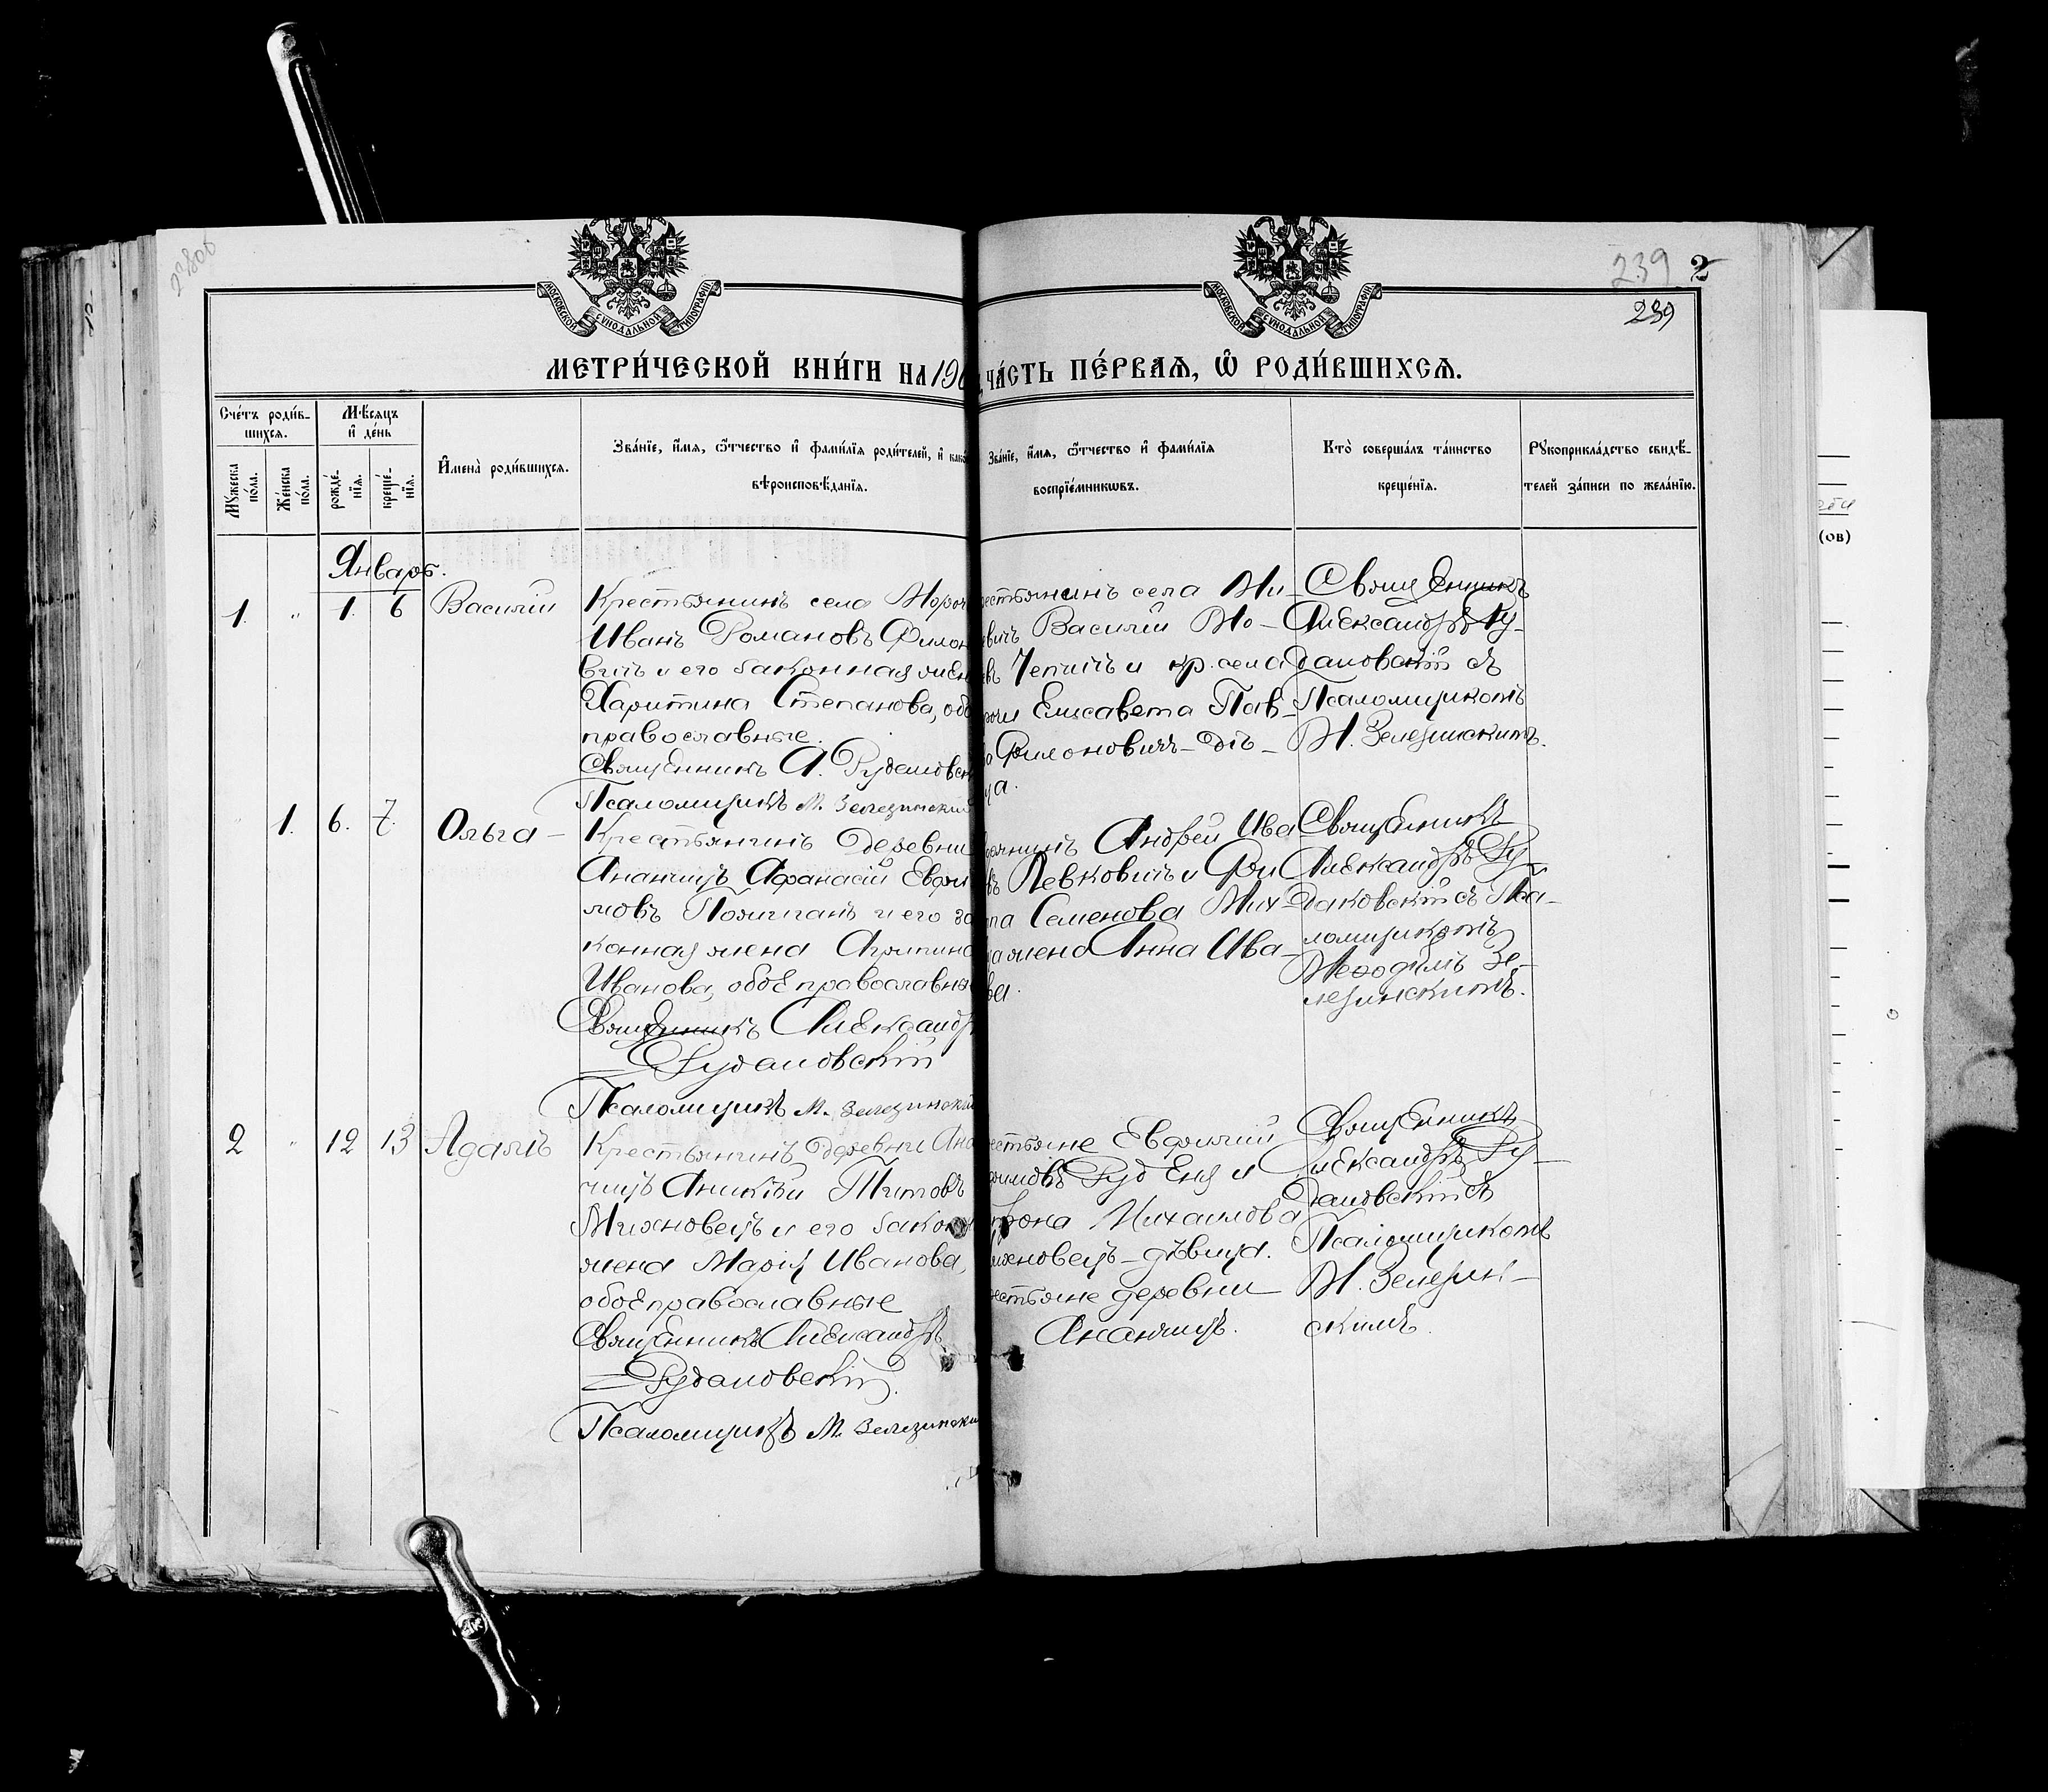 23806
239 2
239
МОСКОВСКОЙ СѴНОДАЛЬНОЙ ТИПОГРАФІИ
МОСКОВСКОЙ СѴНОДАЛЬНОЙ ТИПОГРАФІИ
МЕТРИ́ЧЕСКОЙ КНИ́ГИ НА 190
ЧА́СТЬ ПЕ́РВАѦ, Ѿ РОДИ́ВШИХСѦ.
Сче́тъ роди́в-
шихсѧ.
Мꙋ́жеска по́ла.
Же́нска по́ла.
Мѣ́сѧцъ
и҆ де́нь
рожде́-
нїѧ.
креще́-
нїѧ.
И҆мена̀ роди́вшихсѧ.
Зва́нїе, и҆́мѧ, ѻ҆́тчество и҆ фамѝлїѧ роди́телей, и҆ како
вѣроисповѣ́данїѧ.
Зва́нїе, и҆́мѧ, ѻ҆́тчество и҆ фамѝлїѧ
воспрїе́мникѡвъ.
Кто̀ соверша́лъ та́инство
креще́нїѧ.
Рꙋкоприкла́дство свидѣ́-
телей за́писи по жела́нїю.
Январь.
1. „ 1. 6 Василій
Крестьянинъ села Мороч
Иванъ Романовъ Филон
вичъ и его законная жен
Харитина Степанова, об
православные.
Священникъ А. Рудаковск
Псаломщикъ М. Зелезинский
естьянинъ села Ми-
вичъ Василій Мо-
евъ Чепичъ и кр. села
рочи Елисавета Пав-
ва Филоновичъ - дѣ-
ца.
Священникъ
Александръ Ру-
даковскій съ
Псаломщикомъ
М. Зелезинскимъ.
„ 1. 6. 7. Ольга -
Крестьянинъ деревни
Ананчицъ Афанасій Евфи
мовъ Полич и его за
конная жена Агрипина
Иванова, обоє православны
Священникъ Александр
Рудаковскій
Псаломщикъ М. Зелезинскій
Андрей Ива
въ Левковичъ и
Семенова Мих-
жена Анна Ива-
ва.
Священникъ
Александръ Ру-
даковскій съ Пса-
ломщикомъ
Меѳодіемъ Зе-
лезинскимъ.
2 „ 12 13 Адамъ
Крестьянинъ деревни Ана
чицъ Аникій Титовъ
Михновецъ и его закон
жена Марія Иванова,
обоє православные
Священникъ Александръ
Рудаковскій.
Псаломщикъ М. Зелезински
естьяне Евфимій
фимовъ Руденя и
Михаилова
ихновецъ - дѣвица.
естьяне деревни
Ананчицъ.
Священникъ
Александръ Ру-
даковскій съ
Псаломщикомъ
М. Зелезин-
скимъ.
(ов)